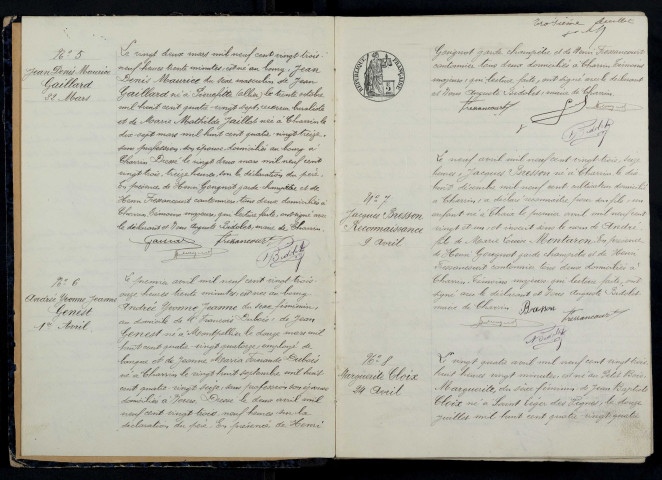 N° 5
Jean Denis Maurice
Gaillard
22 Mars
Le vingt deux mars mil neuf cent vingt trois
neuf heures trente minutes, est né au bourg, Jean
Denis Maurice du sexe masculin de Jean
Gaillard né à Pierrefitte (Allier) le trente octobre
mil huit cent quatre-vingt sept,
et de Marie Mathilde Jaillot née à Charrin le
dix sept mars mil huit cent quatre-vingt treize,
sans profession, son épouse domiciliés au bourg à
Charrin. Dressé le vingt deux mars mil neuf cent
vingt trois, treize heures, sur la déclaration du père.
En présence de Henri Gonguet garde champêtre et de
Fressancourt cantonnier, tous deux domiciliés à
Charrin témoins majeurs, qui lecture faite, ont signé avec
le déclarant et Nous Auguste maire de Charrin
N° 6
Andrée Yvonne Jeanne
Genest
1er Avril
Le premier avril mil neuf cent vingt trois
onze heures trente minutes, est née au bourg
Andrée Yvonne Jeanne du sexe féminin,
au domicile de François Dubois, de Jean
Genest né à Montpellier le douze mars mil
huit cent quatre-vingt quatorze, employé de
et de Jeanne Maria Dubois
née à Charrin le vingt huit septembre mil huit
cent quatre-vingt seize, sans profession son épouse
domiciliés à Dressé le deux avril mil
neuf cent vingt trois neuf heures sur la
déclaration du père. En présence de Henri
Troisième feuillet
RÉPUBLIQUE FRANÇAISE
Gonguet garde champêtre et de Fressancourt
cantonnier tous deux domiciliés à Charrin témoins
majeurs, qui lecture faite, ont signé avec le déclarant
et Nous Auguste maire de Charrin
N° 7
Jacques Bresson
Reconnaissance
9 Avril
Le neuf avril mil neuf cent vingt trois, seize
heures, Jacques Bresson né à Charrin le dix
huit mil neuf cent domicilié
à Charrin, a déclaré reconnaître pour son fils, un
enfant né à Paris le premier avril mil neuf cent
vingt et un et inscrit sous le nom de André
fils de Marie Louise Montaron. En présence
de Henri Gonguet garde champêtre et de
Fressancourt cantonnier tous deux domiciliés à
Charrin témoins majeurs, qui lecture faite, ont
signé avec le déclarant et Nous Auguste
maire de Charrin
N° 8
Marguerite Cloix
24 Avril
Le vingt quatre avril mil neuf cent vingt trois
huit heures vingt minutes est née au Petit Bois
Marguerite, du sexe féminin de Jean Baptiste
Cloix né à Saint Léger des Vignes le douze
juillet mil huit cent quatre vingt quatre